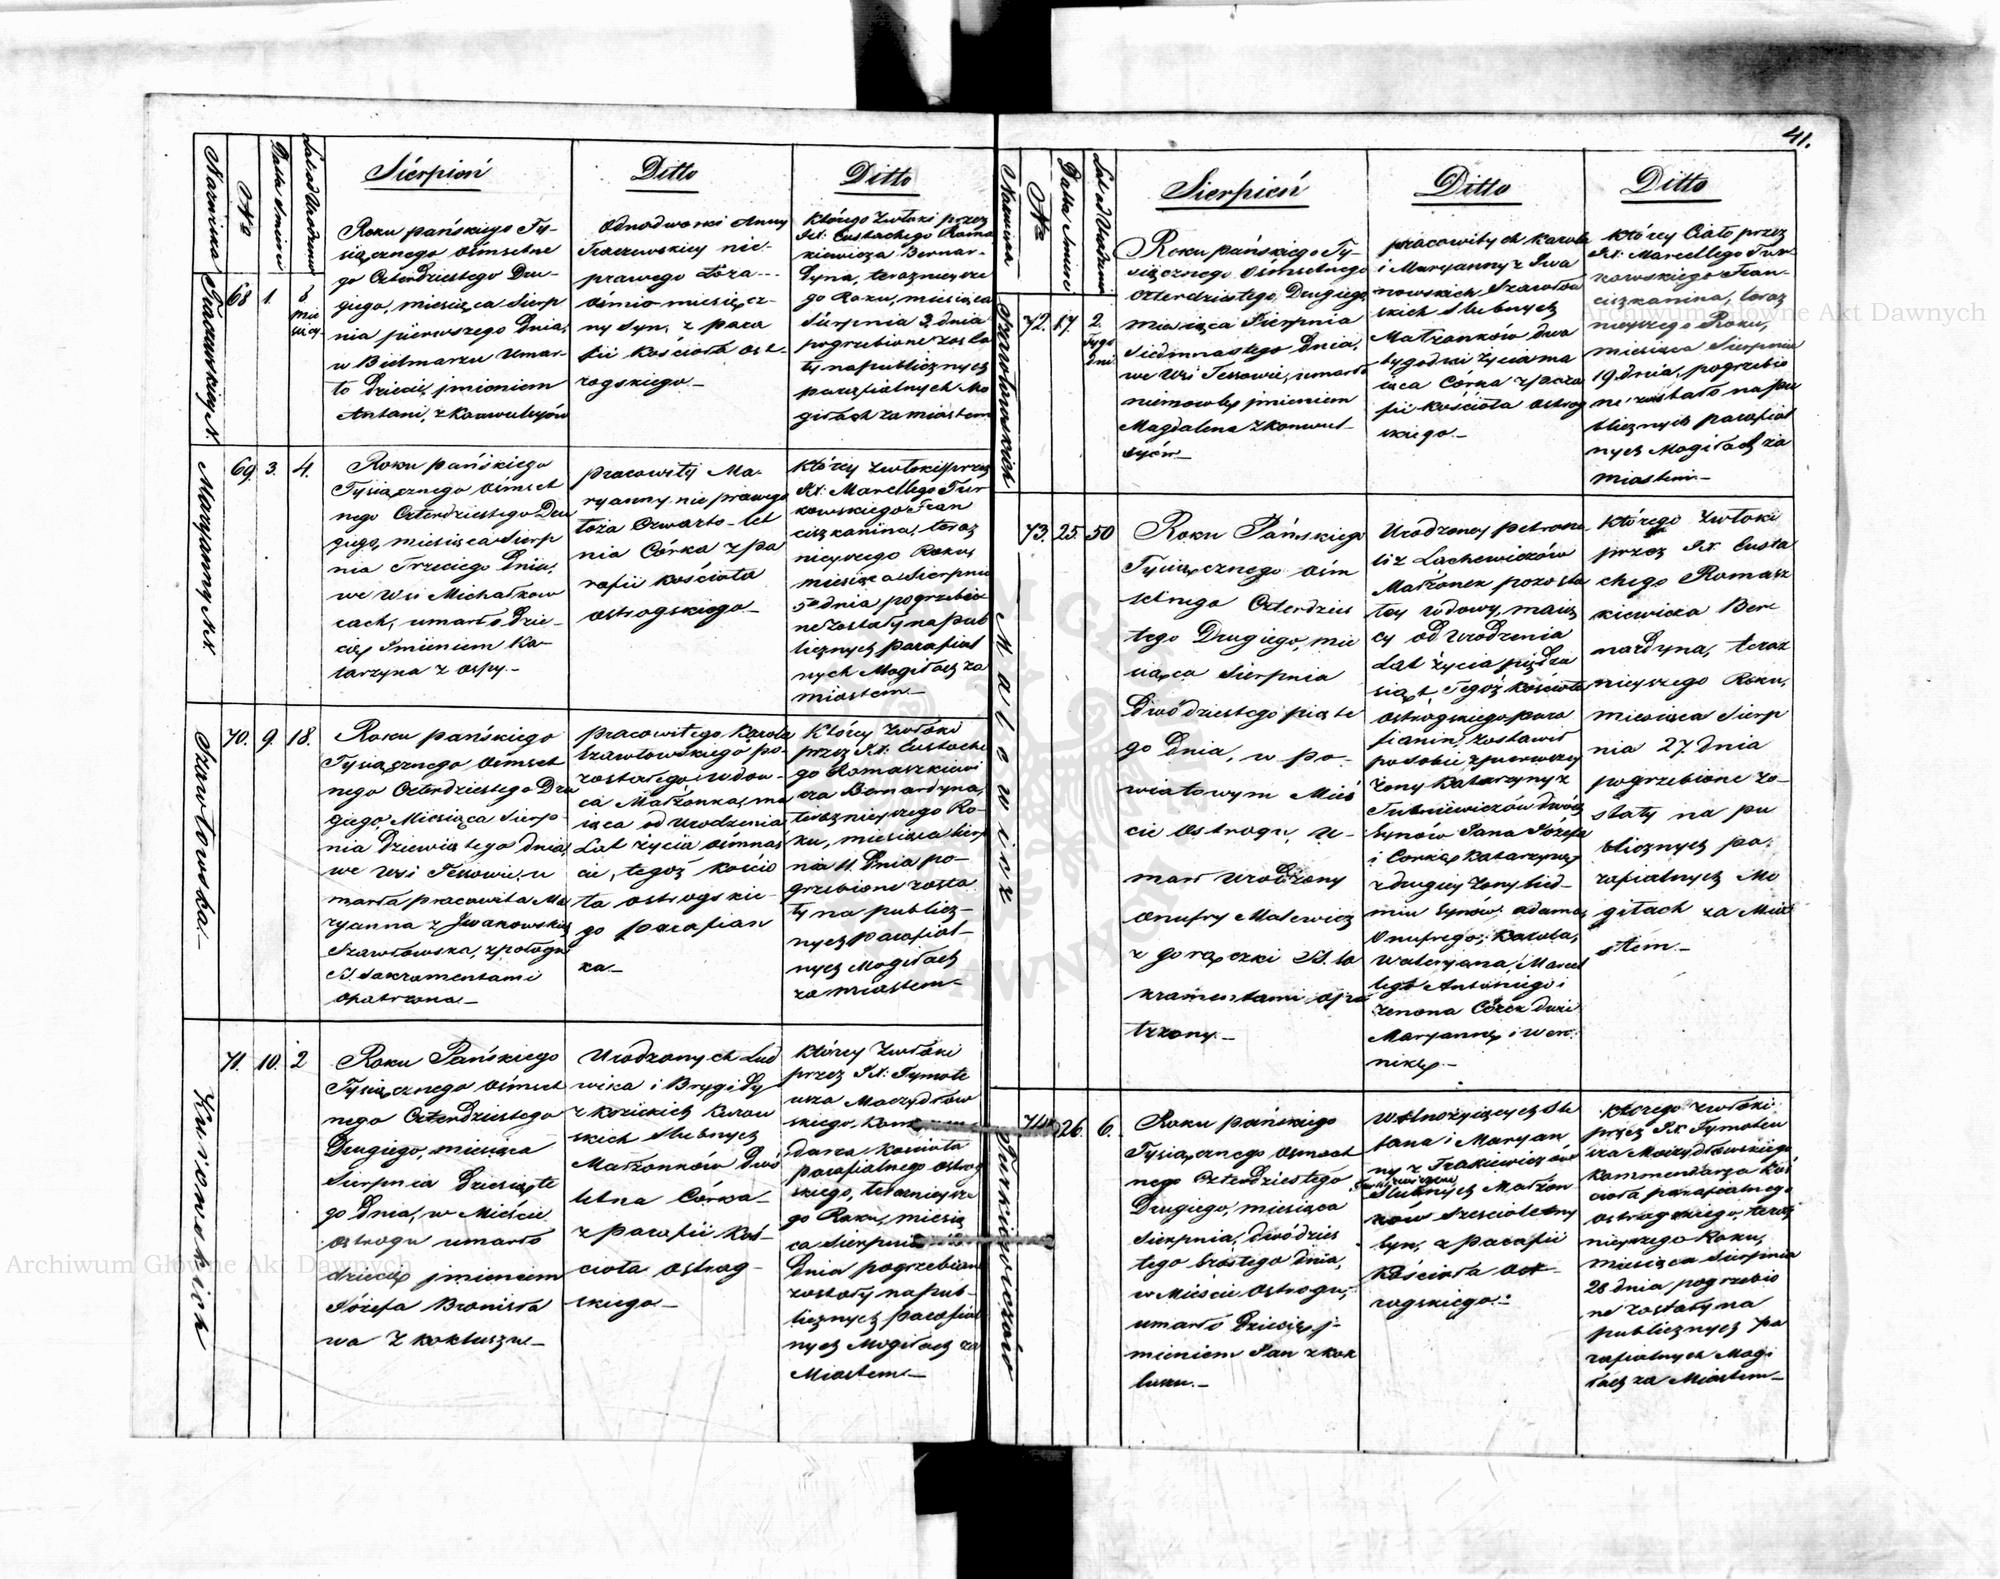 41.
Nazwiska
No
Datta śmierci
Lat od Urodzenia
Sierpień
Ditto
Ditto
Traczewskiey N.
68
1.
8
mie
sięcy
Roku pańskiego Ty-
siącznego ośmsetne
go Czterdziestego Dru-
giego, miesiąca Sierp
nia pierwszego Dnia,
w Bielmarzu umar-
ło Dziecię jmieniem
Antoni, z konwulsyów
Odnodworki Anny
Traczewskiey nie-
prawego Łoża---
ośmio miesięcz-
ny Syn, z para
fii Kościoła Ost-
rogskiego_
którego zwłoki przez
JX: Eustachego Roma
kiewicza Bernar-
dyna, teraznieysze
go Roku, miesiąca
Sierpnia 3 dnia
pogrzebione zosta
ły na publicznych
parafialnych Mo
giłach za miastem
Maryanny N.N.
69.
3.
4.
Roku pańskiego
Tysiącznego ośmset
nego Czterdziestego Dru
giego, miesiąca Sierp
nia Trzeciego Dnia,
we Wsi Michałkow
cach, umarło Dzie-
cię Jmieniem Ka-
tarzyna z ospy._
pracowitey Ma-
ryanny nie prawego
łoża Czwarto-let
nia Córka z pa
rafii kościoła
ostrogskiego_
którey zwłoki przez
JX: Marcellego Tur
kowskiego Fran
ciszkanina, teraz
nieyszego Roku,
miesiąca Sierpnia
5o dnia pogrzebio
ne zostały na pub
licznych parafial
nych Mogiłach za
miastem_
Szawłowska._
70.
9.
18.
Roku pańskiego
Tysiącznego ośmset
nego Czterdziestego Dru
giego, Miesiąca Sierp-
nia Dziewiątego dnia,
we Wsi Tessowie, u
marła pracowita Ma
ryanna z Jwakowskich
Szawłowska, z połogu
ŚŚ Sakramentami
opatrzona_
pracowitego Karola
Szawłowskiego po-
zostałego wdow-
ca Małżonka, ma
iąca od urodzenia
Lat życia ośmnaś
cie, tegoż Kościo
ła ostrogskie-
go parafian
ka._
którey zwłoki
przez JX: Eustache
go Romaszkiewi
cza Bernardyna,
teraznieyszego Ro-
ku, miesiąca Sierp
nia 11 Dnia po-
grzebione zosta
ły na publicz-
nych parafial-
nych Mogiłach
za miastem_
Kurowskich
71.
10.
2
Roku Pańskiego
Tysiącznego ośmset
nego Czterdziestego
Drugiego, miesiąca
Sierpnia Dziesiąte
go Dnia, w Mieście
ostrogu umarło
dziecię jmieniem
Józefa Bronisła
wa z kokluszu_
Urodzonych Lud
wika i Brygidy
z Kozickich Kurow
skich Slubnych
Małżonków Dwó
letna Córka_
z parafii Koś-
cioła ostrog-
skiego_
którey zwłoki
przez JX: Tymote
usza Moczydłow
skiego,
darza Kościoła
parafialnego ostrog
skiego, teraznieysze
go Roku, miesią
ca Sierpnia
Dnia pogrzebione
zostały na pub-
licznych parafial
nych Mogiłach za
Miastem_
Nazwiska
No
Datta Smierci
Lat od Urodzenia
Sierpień
Ditto
Ditto
Szawłowskich
72.
17.
2.
Tygo
dni
Roku pańskiego Ty-
siącznego Ośmsetnego
czterdziestego Drugiego,
miesiąca Sierpnia
Siedmnastego Dnia,
we Wsi Tessowie, umarło
niemowlę jmieniem
Magdalena z konwul-
syów_
pracowitych Karola
i Maryanny z Jwa
nowskich Szawłow
skich Slubnych
Małżonków dwa
tygodni życia ma
iąca Córka z para
fii kościoła ostrog
skiego_
którey Ciało przez
JX: Marcellego Tur
kowskiego Fran-
ciszkanina, teraz
nieyszego Roku,
miesiąca Sierpnia
19 dnia, pogrzebio
ne zostało na pu
blicznych parafial
nych Mogiłach za
miastem_
Malewicz
73.
25.
50
Roku Pańskiego
Tysiącznego ośm
setnego Czterdzies
tego Drugiego, mie
siąca Sierpnia
Dwódziestego piąte
go Dnia, w po-
wiatowym Mieś
cie Ostrogu, u-
marł Urodzony
Onufry Malewicz
z gorączki ŚŚ. Sa
kramentami opa
trzony_
Urodzoney Petrone
li z Lachewiczów
Małżonek pozosta
łey wdowy, maią
cy od Urodzenia
Lat życia pięćdzie
siąt, Tegoż Kościoła
Ostrogskiego para
fianin, zostawił
po sobie z pierwszey
żony Katarzyny z
dwóch
Synów Jana Józefa
i Corkę Katarzynę,
z drugiey żony Sied-
miu Synów: adama,
Onufrego, Karola,
Waleryana, Marcel
lego Antoniego i
Zenona Córek dwie
Maryannę i wero-
nikę_
którego zwłoki
przez JX. Eusta
chego Romasz
kiewicza Ber
nardyna, teraz
nieyszego Roku,
miesiąca Sierp
nia 27 dnia
pogrzebione zo-
stały na pu
blicznych pa-
rafialnych Mo
giłach za Mia
stem_
26.
6.
Roku pańskiego
Tysiącznego Osmset
nego Czterdziestego
Drugiego, miesiąca
Sierpnia, dwódzies
tego szóstego dnia,
w Mieście Ostrogu,
umarło Dziecię j-
mieniem Jan z kok
luszu._
Wolnożyiących Ste
fana i Maryan
ny z
Slubnych Małżon
ków Sześcioletny
Syn, z parafii
Kościoła Ost-
rogskiego._
którego zwłoki
przez JX Tymoteu
sza Moczydłowskiego
Kommendarza Koś
cioła parafialnego
ostrogskiego, teraz
nieyszego Roku,
miesiąca Sierpnia
28 dnia pogrzebio
ne zostały na
publicznych pa
rafialnych Mogi
łach za Miastem_
Archiwum Główne Akt Dawnych
Archiwum Główne Akt Dawnych